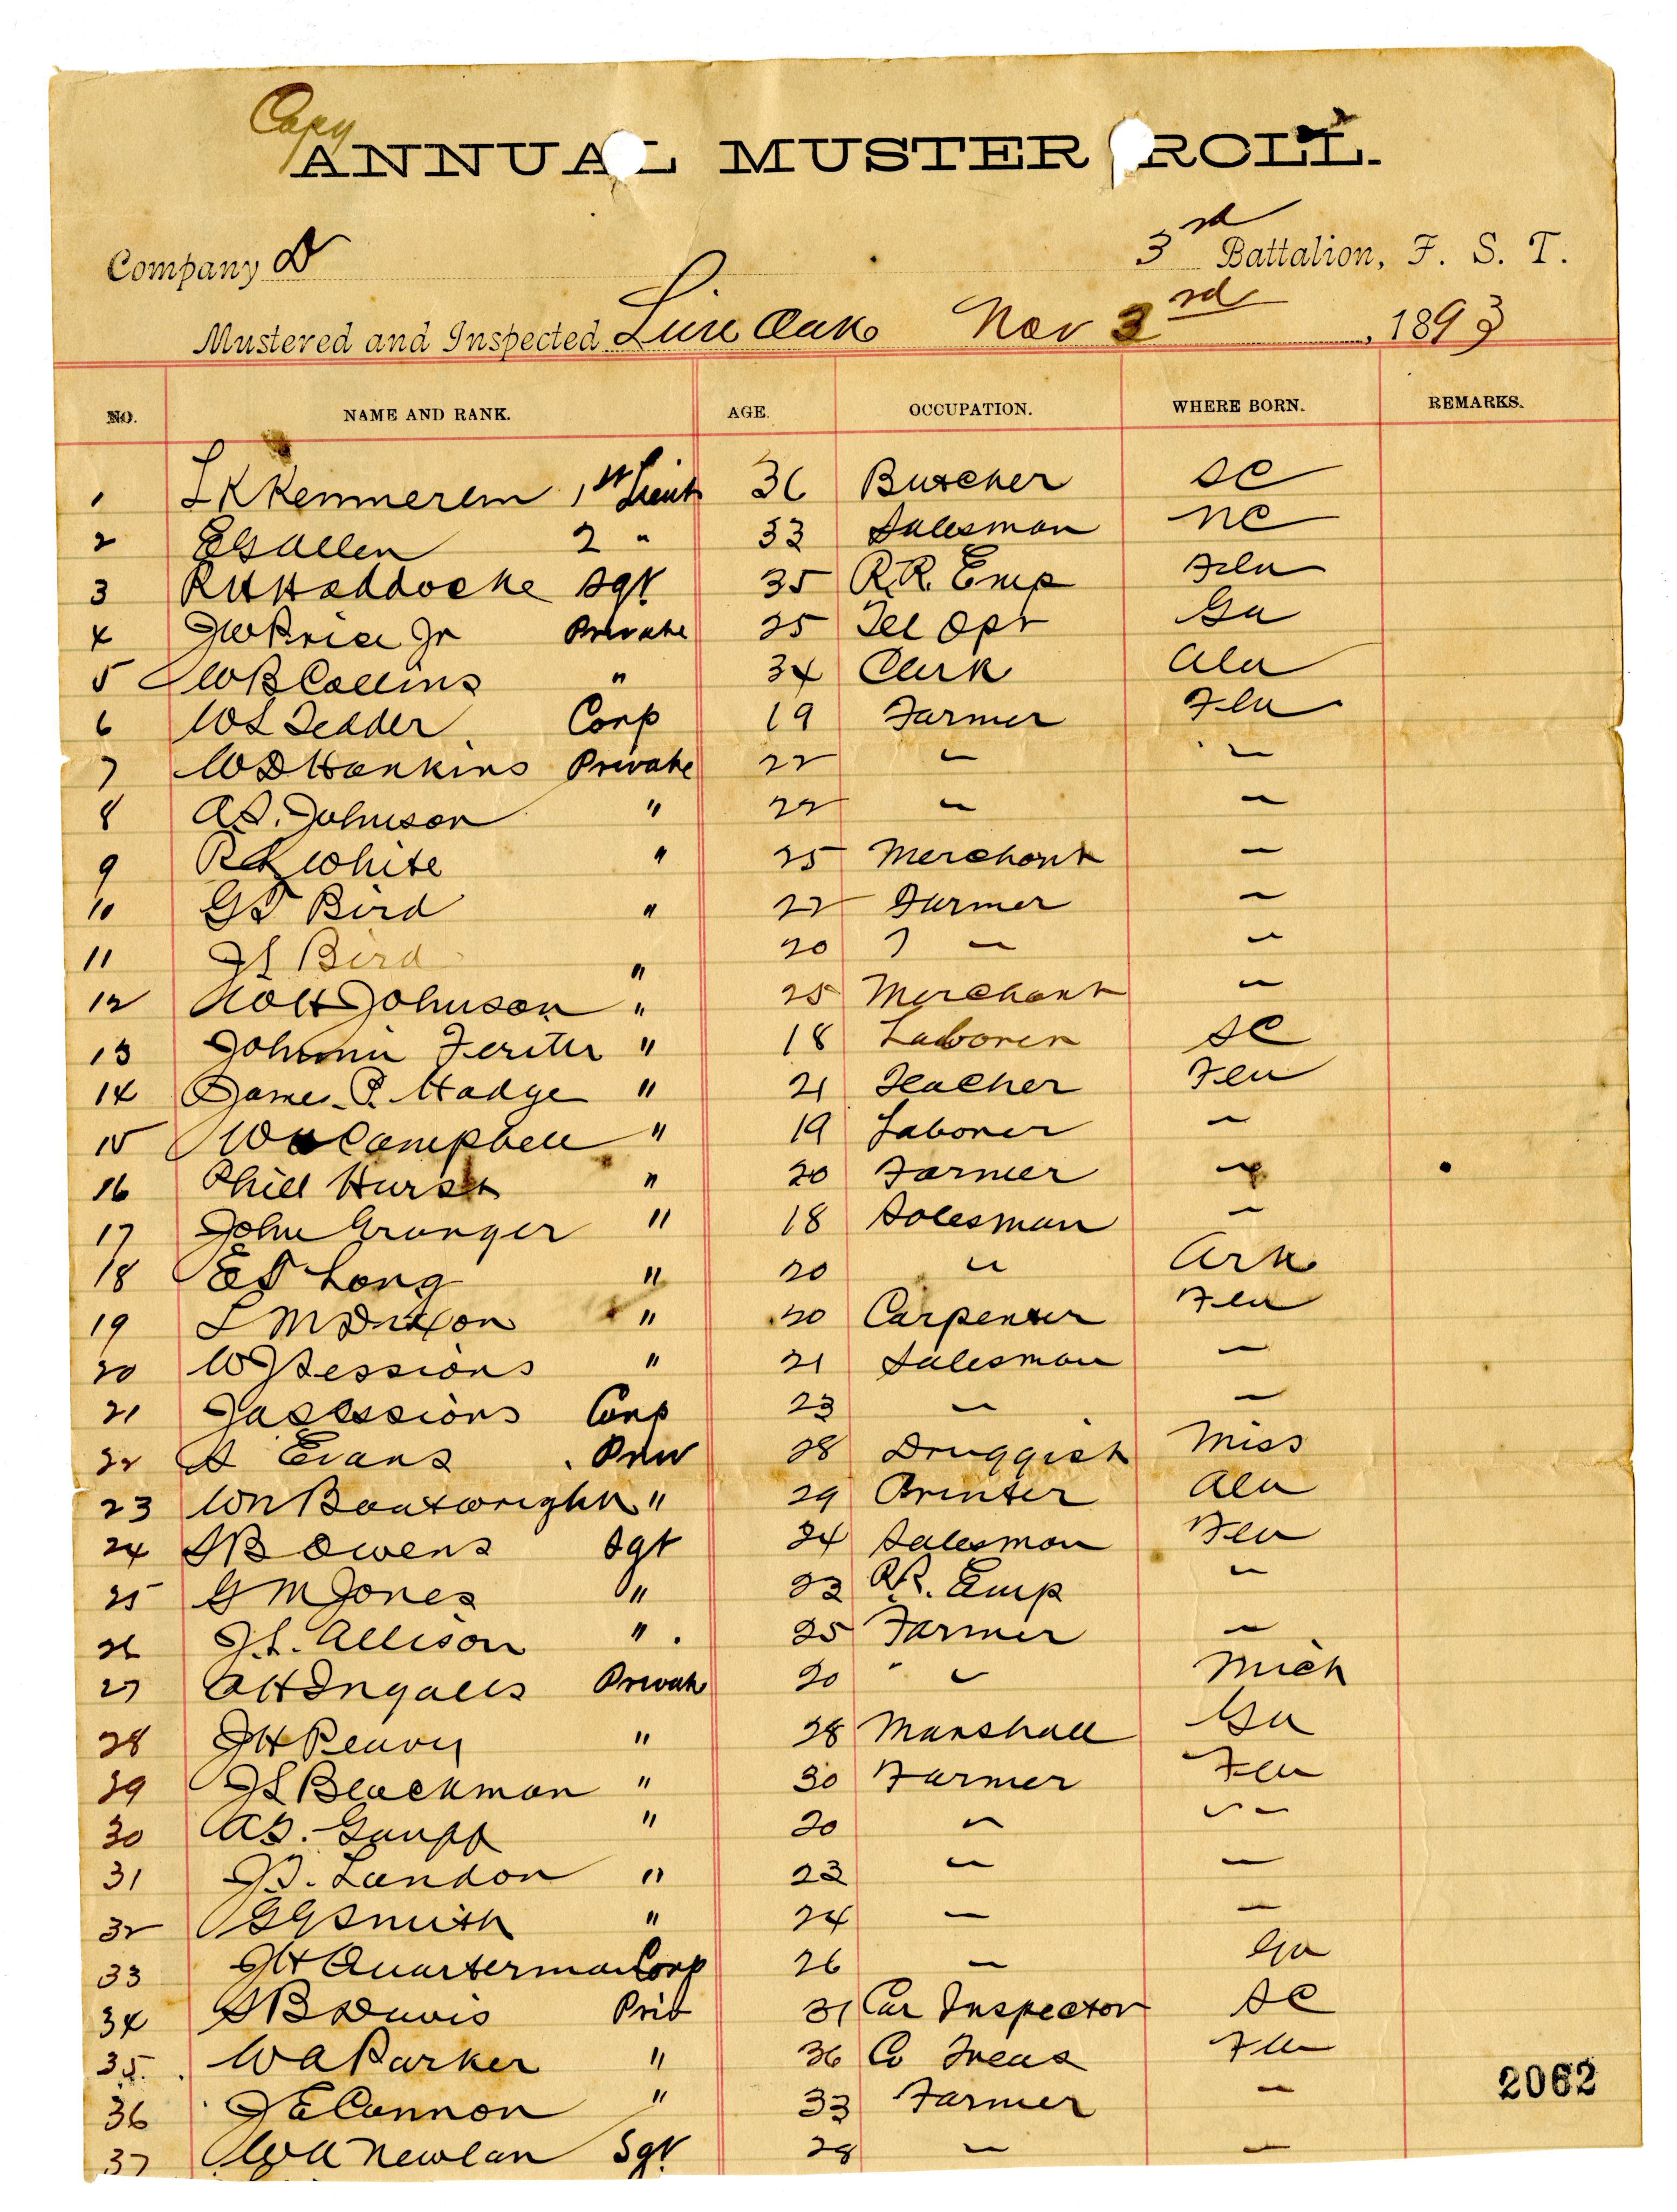 Copy
ANNUAL MUSTER ROLL.
Company D 3rd Battalion, F. S. T.
Mustered and Inspected Live Oak Nov 3rd, 1893
NO. NAME AND RANK. AGE. OCCUPATION. WHERE BORN. REMARKS.
1 L K 1st Lieut 36 Butcher SC
2 E G Allen 2 " 33 Salesman NC
3 R H Haddocke Sgt 35 R.R. Emp Fla
4 J W Price Jr Private 25 Tel Opr Ga
5 W B Collins " 34 Clerk Ala
6 W L Tedder Corp 19 Farmer Fla
7 W D Hankins Private 22 " "
8 A. S. Johnson " 22 " "
9 R L White " 25 Merchant "
10 G T Bird " 22 Farmer "
11 J L Bird " 20 " "
12 Johnson " 25 Merchant "
13 Johnnie " 18 Laborer SC
14 James P. Hodge " 21 Teacher Fla
15 Campbell " 19 Laborer "
16 Phill Hurst " 20 Farmer "
17 John Granger " 18 Salesman "
18 E T Long " 20 " Ark
19 L M Dixon " 20 Carpenter Fla
20 W J Sessions " 21 Salesman "
21 Sessions Corp 23 " "
22 S Evans Priv 28 Druggist Miss
23 W N Boatwright " 29 Printer Ala
24 S B Owens Sgt 24 Salesman Fla
25 G M Jones " 23 R.R. Emp "
26 J. L. Allison " 25 Farmer "
27 A H Ingalls Private 20 " Mich
28 J H Peavy " 28 Marshall Ga
29 J L Blackman " 30 Farmer Fla
30 A S. " 20 " "
31 Landon " 23 " "
32 G G Smith " 24 " "
33 J H Quarterman Corp 26 " Ga
34 S B Davis Priv 31 Car Inspector SC
35. W A Parker " 36 Co Treas Fla
36 J E Cannon " 33 Farmer "
37 W A Newlan Sgt 28 " "
2062